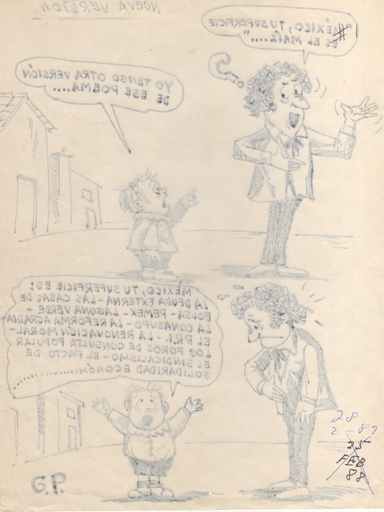 NUEVA VERSION
"MÉXICO, TU SUPERFICIE
ES EL MAÍZ..."
YO TENGO OTRA VERSIÓN
DE ESE POEMA....
MÉXICO, TU SUPERFICIE ES:
LA DEUDA EXTERNA - LAS CASAS DE
BOLSA - PEMEX - LAGUNA VERDE -
LA CONSUPO - LA REFORMA AGRARIA
EL P.R.I. - LA RENOVACIÓN MORAL -
LOS FOROS DE CONSULTA POPULAR
EL SINDICALISMO - EL PACTO DE
SOLIDARIDAD ECONÓMI..........
G.P.
28
2-87
FEB
88